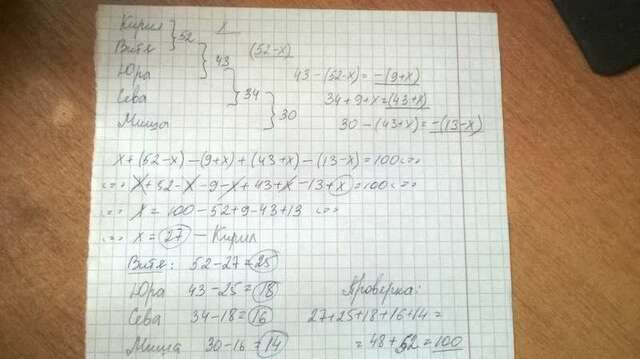 Кирил } 52 x
Витя } 43 (52-x)
Юра } 34 43-(52-x)=-(9+x)
Сева } 30 34+9+x=(43+x)
Миша 30-(43+x)=-(13-x)
x+(52-x)-(9+x)+(43+x)-(13-x)=100<=>
<=> x+52-x-9-x+43+x-13+x=100<=>
<=> x=100-52+9-43+13 <=>
<=> x=27 - Кирил
Витя: 52-27=25
Юра 43-25=18 Проверка:
Сева 34-18=16 27+25+18+16+14=
Миша 30-16=14 =48+52=100